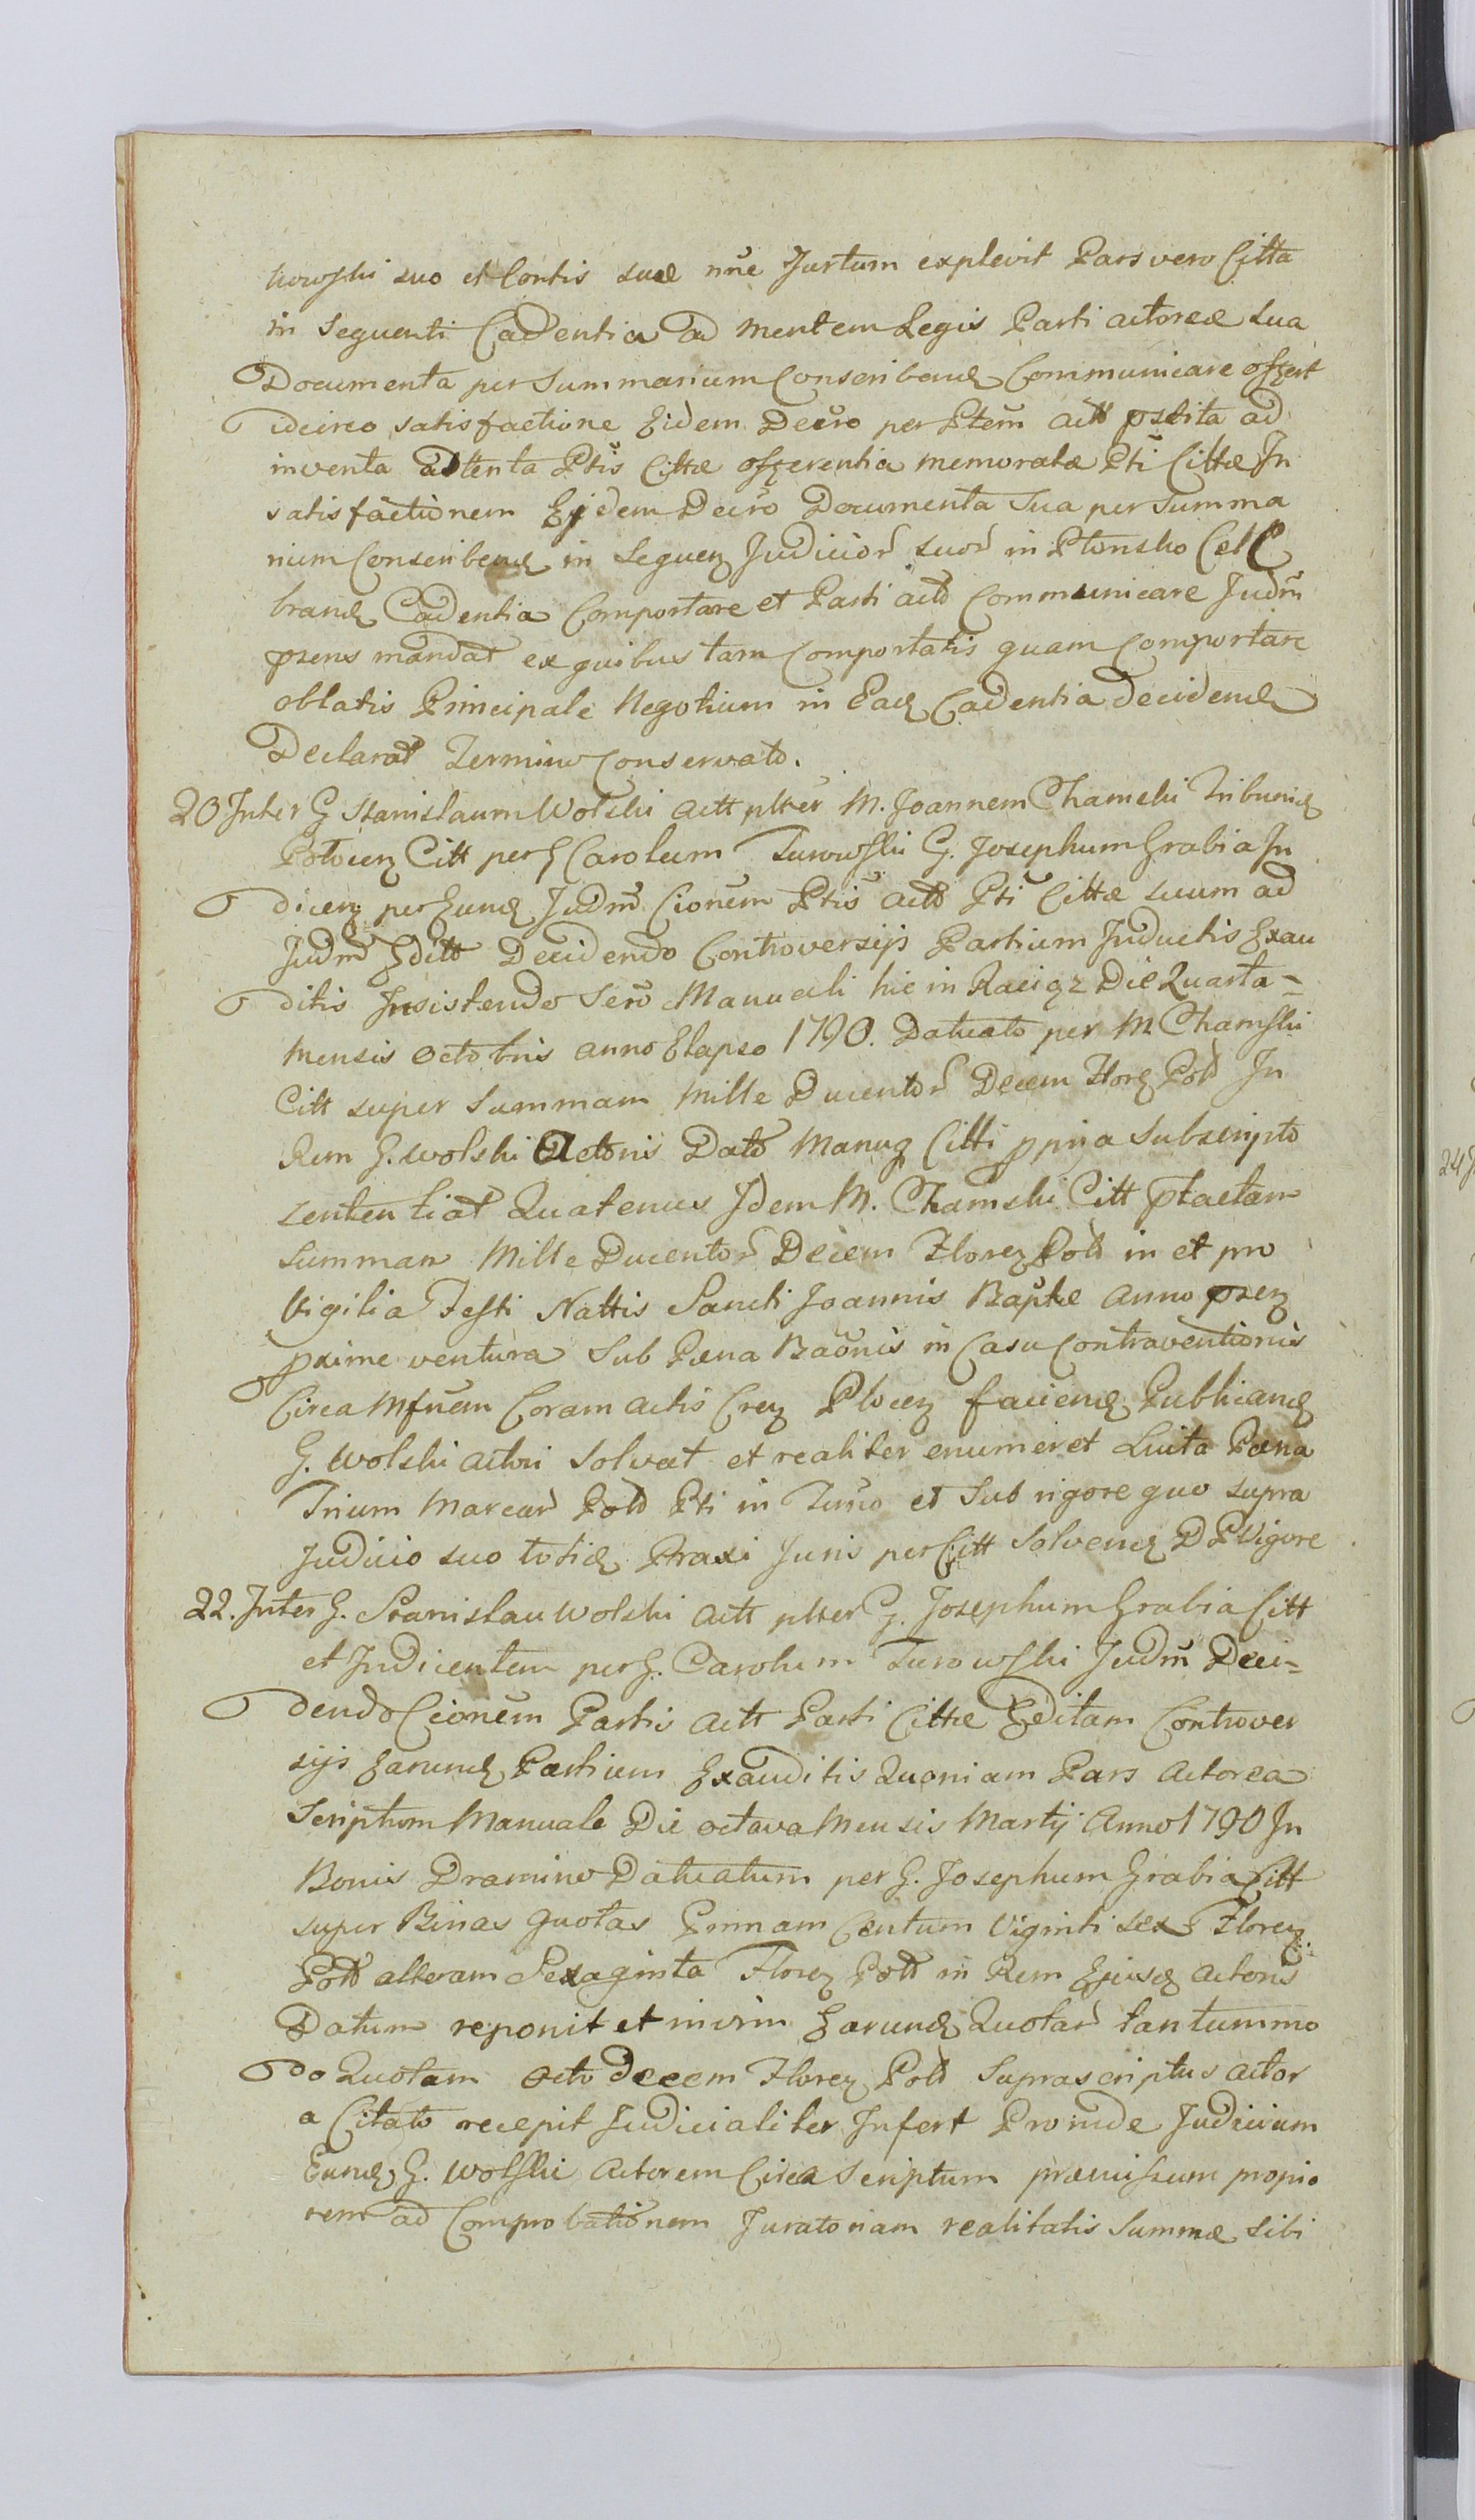 kowski suo et Contis suæ nñe Jurtum explevit Pars vero Citta
in Sequenti Cadentia ad mentem Legis Parti actoreæ sua
Documenta per Summarium Conscribend Communicare offert
idcirco satisfactione Eidem Decro per Ptem actt pstita ad
inventa attenta Ptis Cittæ offerentia memoratæ Pti Cittæ In
satisfactionem Ejdem Decro Documenta Sua per Summa
rium Conscribend in Sequen Judicior suor in Plonsko Cele
brand Cadentia Comportare et Parti actt Communicare Judm
prens mandat ex quibus tam Comportatis quam Comportare
oblatis Principale Negotium in Ead Cadentia decidend
Declarat Termino Conservato.
20 Inter G Stanislaum Wolski actt plter M. Joannem Chamski Tribunid
Plocien Citt per G Carolum Turowski G. Josephum Grabia In
dicen per Eund Judm Cionem Ptis actt Pti Cittæ suum ad
Judm Editt Decidendo Controversijs Partium Inductis Exau
ditis Insistendo Scro Manuali hic in Raciąz Die Quarta-
mensis octobris anno Elapso 1790. Datuato per M Chamski
Citt super Summam Mille Ducentor Decem Flore Pold In
Rem G. Wolski Actoris Dato Manuq Citti ppria Subscripto
sententiat Quatenus Idem M. Chamski Citt Ptactam
Summam Mille Ducentor Decem Floren Pold in et pro
Vigilia Festi Nattis Sancti Joannis Baptæ anno pren
proxime ventura Sub Pæna Baonis in Casu Contraventionis
Circa Mfnem Coram actis Cren Plocen faciend Publicand
G. Wolski actori Solvat et realiter enumeret Luita Pæna
Trium Marcar Pold Pti in Turno et Sub rigore quo supra
Judicio suo totid Praxi Juris per Citt Solvend D P Vigore
22. Inter G. Stanislau Wolski actt plter G. Josephum Grabia Citt
et Indicentem per G. Carolum Turowski Judm Deci-
dendo Cionem Partis actt Parti Cittæ Editam Controver
sijs Earund Partium Exauditis Quoniam Pars actorea
Scriptum Manuale Die octava Mensis Martij Anno 1790 In
Bonis Dramino Datuatum per G. Josephum Grabia Citt
super Binas quotas Primam Centum Viginti sex Floren
Pold alteram Sexaginta Floren Pold in Rem Ejusd actoris
Datum reponit et in vim Earund Quotar tantummo
do Quotam octo decem Floren Pold Suprascriptus actor
a Citato recepit Judicialiter Infert Proinde Judicium
Eund G. Wolski Actorem Circa Scriptum præmissum propio
rem ad Comprobationem Juratoriam realitatis Summæ sibi